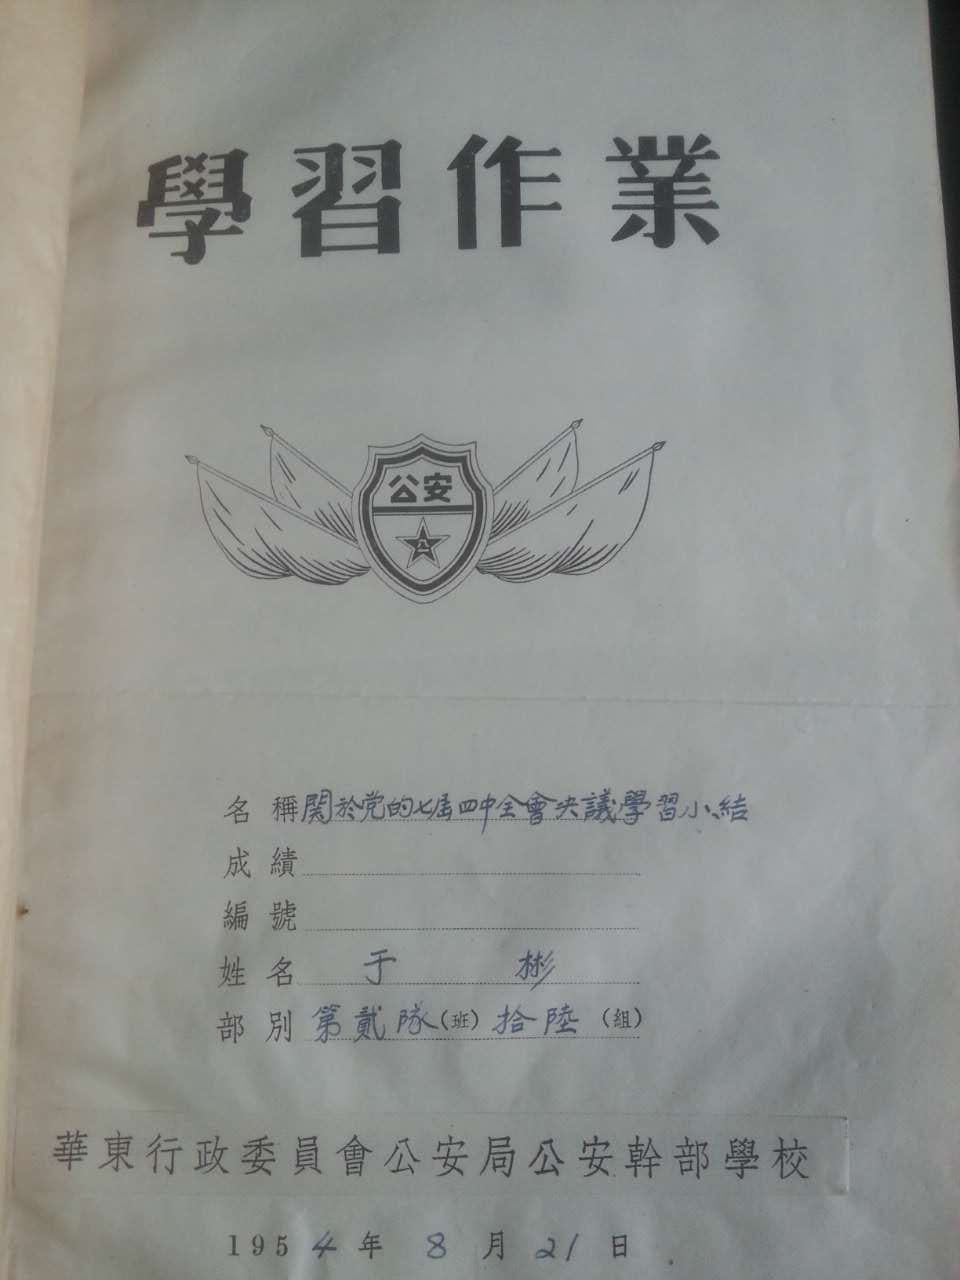 學習作業
公安
八一
名稱 関於党的七届四中全會决議學習小結
成績
編號
姓名 于 彬
部別 第貳隊(班)拾陸(組)
華東行政委員會公安局公安幹部學校
1954年8月21日